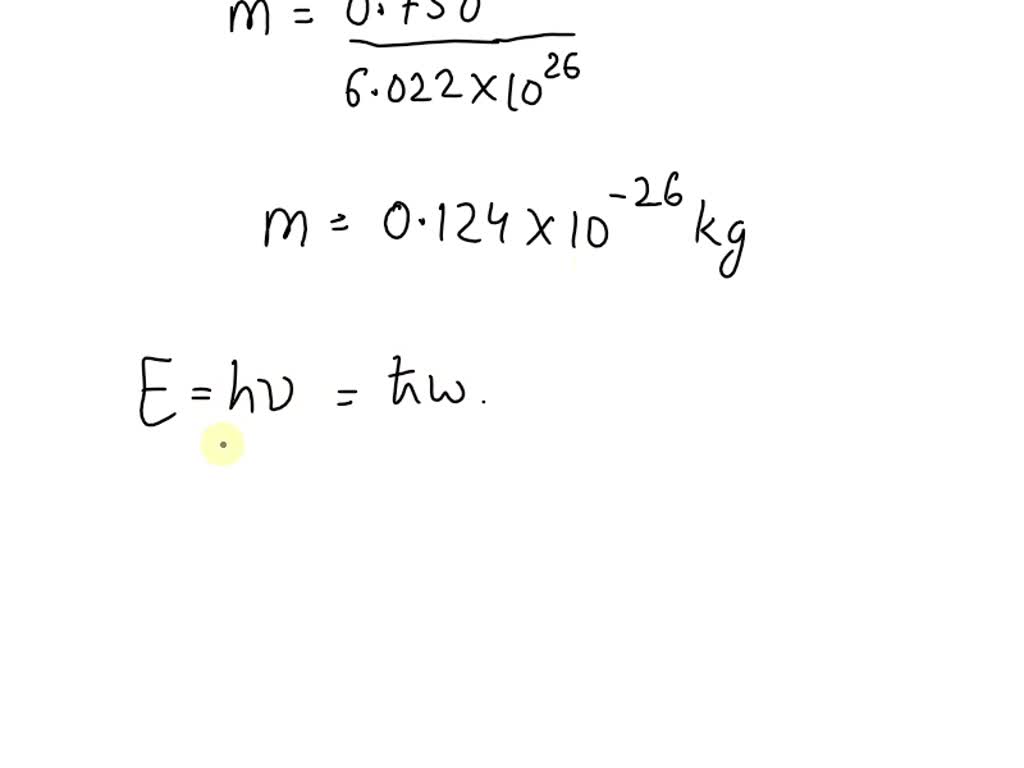 m = 0.750
6.022 × 10^26
m = 0.124 × 10^-26 kg
E = hν = ħω.